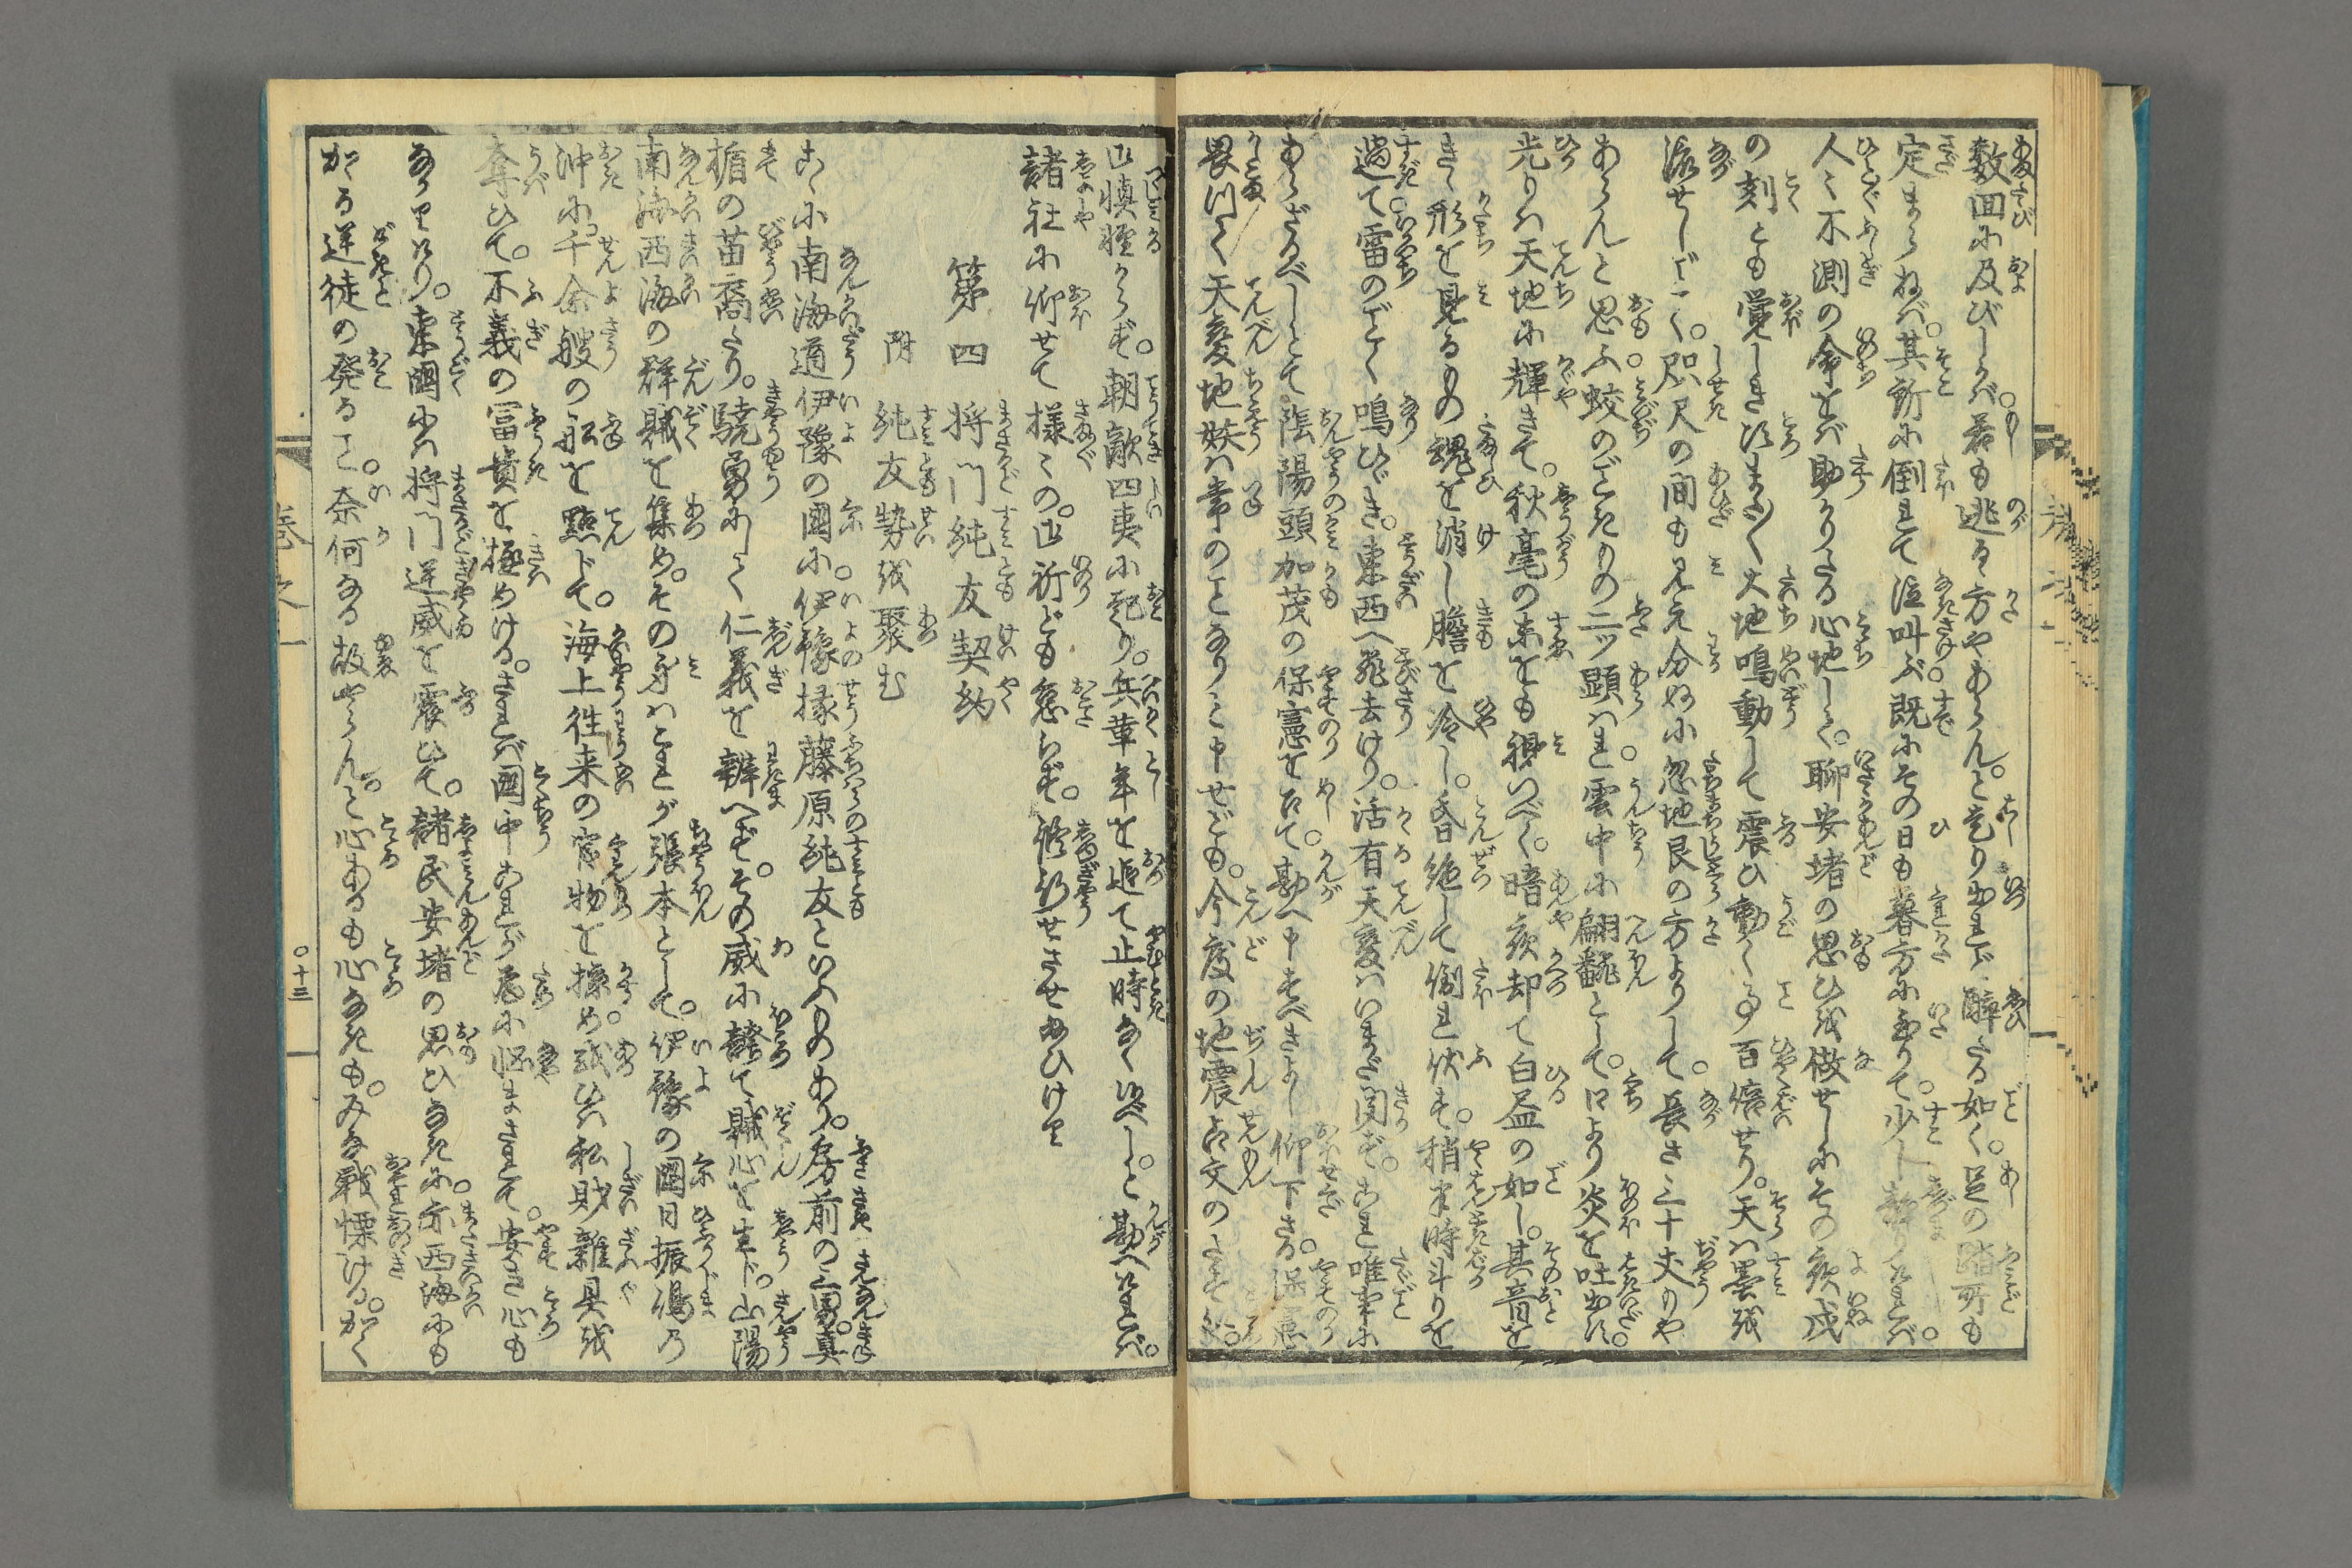 数回に及びしかバ。若も逃るゝ方やあらん。と走り出れバ酔たる如く。足の踏所も
定まらねバ。其所に倒れて泣叫ぶ。既にその日も暮方に至りて。少し静りけれバ。
人〻不測の命をバ助かりたる心地して。聊安堵の思ひを做せしにその夜戌
の刻とも覚しき頃。また〳〵大地鳴動して震ひ動く事百倍せり。天ハ墨を
流せしごとく。咫尺の間も見え分ぬに忽地艮の方よりして。長さ三十丈もや
あらんと思ふ。蛟のごときもの二ツ顕ハれ。雲中に翩翻として。口より炎を吐出す。
光りハ天地に輝きて。秋毫の末をも視つべく。暗夜却て白昼の如し。其音を
きゝ形を見るもの魂を消し膽を冷し。昏絶して倒れ伏す。稍半時斗りを
過て。雷のごとく鳴ひゞき。東西へ飛去けり。活有天変ハいまだ聞ず。これ唯事に
あらざるべしとて陰陽頭加茂の保憲を召て。勘へ申すべきよし仰下さる。保憲
畏つて天変地妖ハ常のことなりと申せども。今度の地震占文のさす処。
御慎軽からず。朝敵四夷に起り。兵革年を追て止時なく候べし。と勘へけれバ。
諸社に仰せて様〻の。御祈ども怠らず。修行せさせ給ひける
第四　将門純友契約
附　純友勢を聚む
こゝに南海道伊豫の国に。伊豫掾藤原純友といふものあり。房前の三男。真
楯の苗裔たり。驍勇にして仁義を辨へず。その威に誇て賊心を生じ。山陽
南海西海の群賊を集め。その身ハこれが張本として。伊豫の國日振嶋乃
沖に。千余艘の舩を點じて。海上往来の官物を掠め或ひハ私財雑具を
奪ひて。不義の冨貴を極めける。されバ國中これが為に悩まされて。安き心も
なかりけり。東國にハ将門逆威を震ひて。諸民安堵の思ひなきに。亦西海にも
かゝる逆徒の発ること。奈何なる故やらん。と心あるも心なきも。みな戦慄ける。かく
巻之一
〇十三